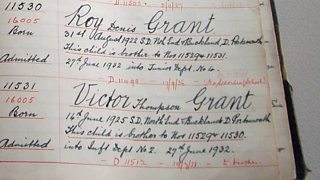 11530
Roy Denis Grant
16005
Born
31st August 1922 S.D. North End & Buckland, D. Portsmouth
This child is brother to Nos 11529 & 11531.
Admitted
27th June 1932 into Junior Dept. No 4.
11531
Victor Thompson Grant
16005
Born
14th June 1925 S.D. North End & Buckland D. Portsmouth
This child is brother to Nos 11529 & 11530.
Admitted
into Inft Dept No 2. 27th June 1932.
D 11512